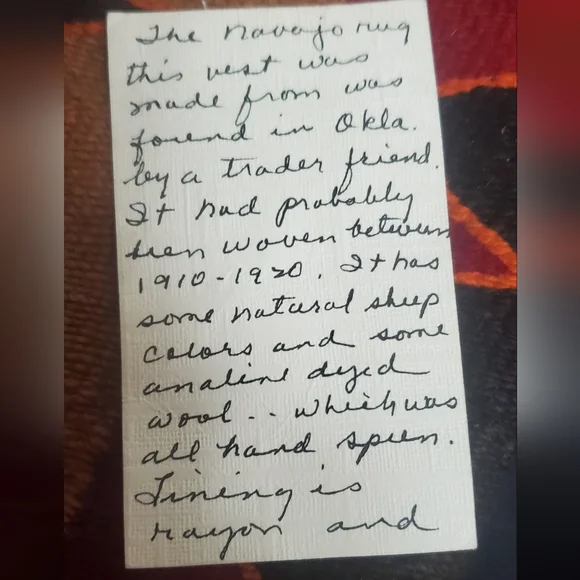 The Navajo rug
this vest was
made from was
found in Okla.
by a trader friend.
It had probably
been woven between
1910-1920. It has
some natural sheep
colors and some
analine dyed
wool -- which was
all hand spun.
Lining is
rayon and